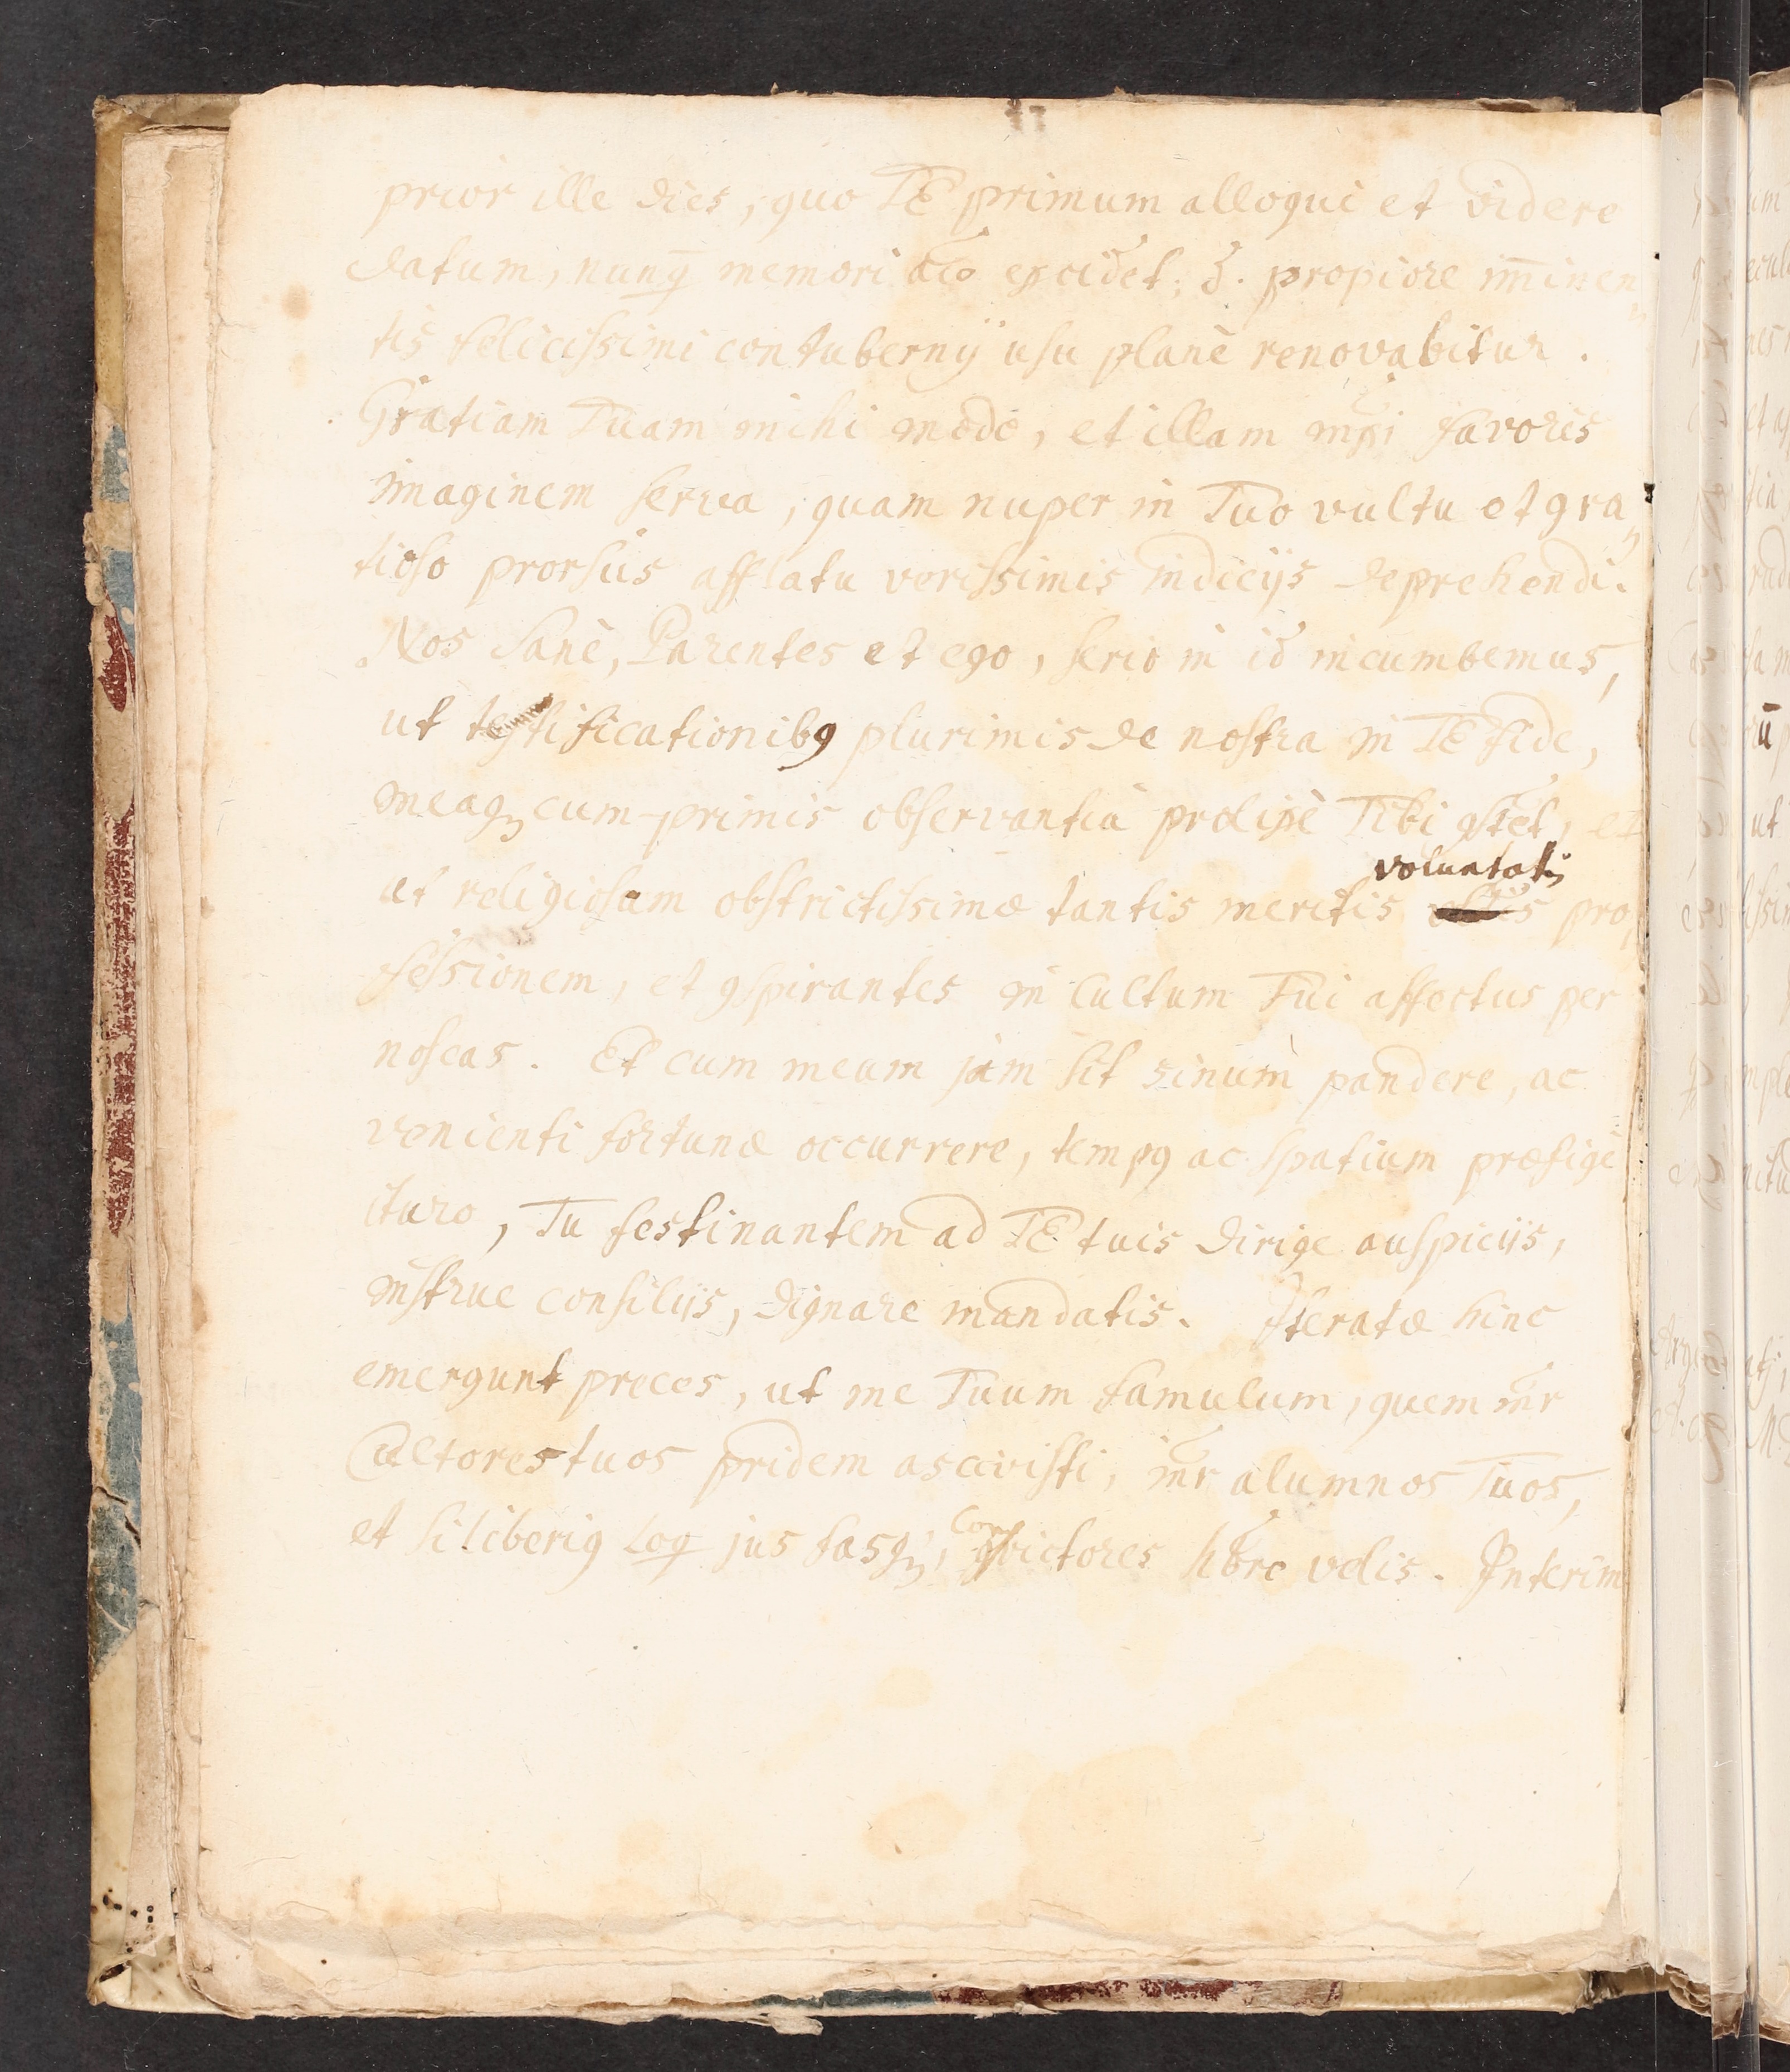 prior ille dies, quo TE primum alloqui et videre
datum, nunq̄ memoriâ excidet; s. propiore im̄inen„
tis felicissimi contubernÿ usu planè renovabitur.
Gratiam Tuam mihi modò, et illam favoris
imaginem serva, quam nuper in Tuo vultu et gra„
tioso prorsus afflatu verissimis indicÿs deprehendi.
Nos sanè, Parentes et ego, serio in id incumbemus,
ut testificationibꝯ plurimis de nostra in TE fide,
meaqꝫ cum-primis observantiâ prolixè Tibi ꝯstet, et
ut religiosam obstrictissimæ tantis meritis voluntatis pro„
fessionem, et ꝯspirantes in cultum Tui affectus per
noscas. Et cum meum jam sit sinum pandere, ac
venienti fortunæ occurrere, tempꝯ ac spatium præfige
ituro, Tu festinantem ad TE tuis dirige auspicÿs,
instrue consilÿs, dignare mandatis. Iteratæ hinc
emergunt preces, ut me Tuum famulum, quem int̄r
Cultores tuos pridem ascivisti, int̄r alumnos Tuos,
et si liberiꝯ loq̄ jus fasqꝫ, Convictores hr̄e velis. Interim